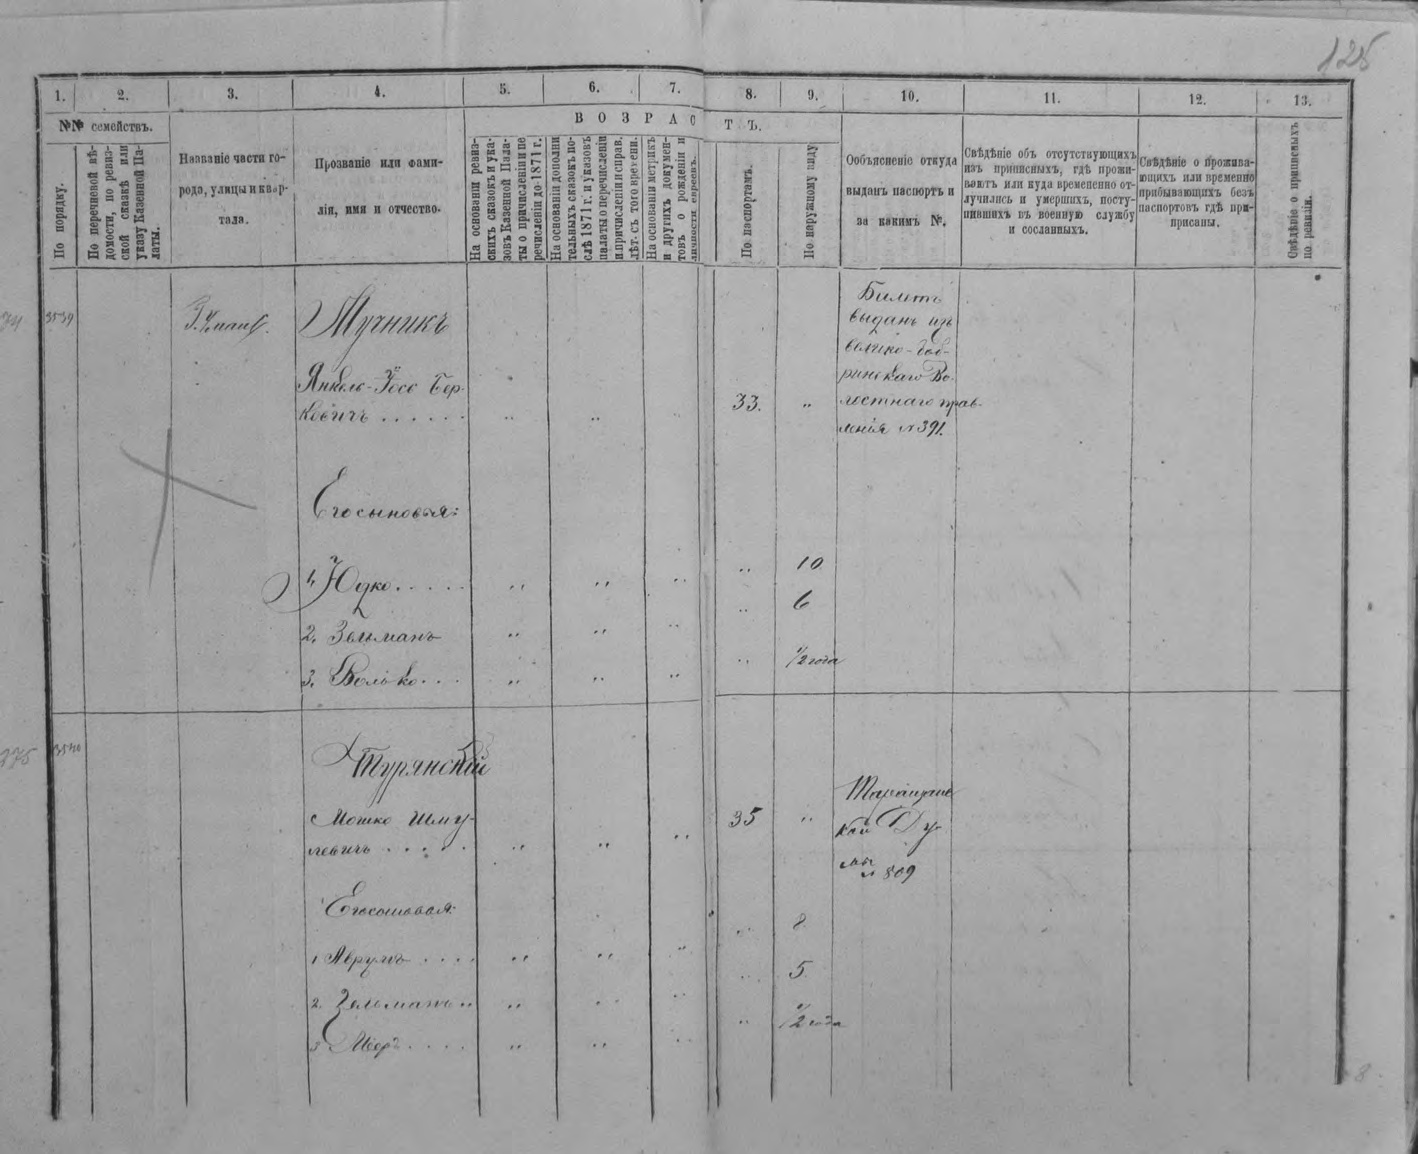 125
1.
2.
3.
4.
5.
6.
7.
8.
9.
10.
11.
12.
13.
№№ семействъ.
В О З Р А С Т Ъ.
По порядку.
По перечневой вѣ-
домости, по ревиз-
ской сказкѣ или
указу Казенной Па-
латы.
Названіе части го-
рода, улицы и квар-
тала.
Прозваніе или фами-
лія, имя и отчество.
На основаніи ревиз-
скихъ сказокъ и ука-
зовъ Казенной Пала-
ты о причисленіи и пе
речисленіи до 1871 г.
На основаніи дополни
тельныхъ сказокъ по-
слѣ 1871 г. и указовъ
палаты о перечисленіи
и причисленіи и справ.
лѣт. съ того времени.
На основаніи метрикъ
и другихъ докумен-
товъ о рожденіи и
личности евреевъ.
По паспортамъ.
По наружному виду
Ообъясненіе откуда
выданъ паспортъ и
за какимъ №.
Свѣдѣніе объ отсутствующихъ
изъ приписныхъ, гдѣ прожи-
ваютъ или куда временно от-
лучились и умершихъ, посту-
пившихъ въ военную службу
и сосланныхъ.
Свѣдѣніе о прожива-
ющихъ или временно
прибывающихъ безъ
паспортовъ гдѣ при-
присаны.
Свѣдѣніе о пришовыхъ
по ревизіи.
3539
Г. Умань.
Мучникъ
Янкель-Іосе Бер-
ковичъ . . . . . .
33.
Билетъ
выданъ изъ
велико-доб-
ринскаго Во-
лостнаго прав-
ленія № 391.
Его сыновья:
1, Юдко . . . . . 10
2. Зельманъ 6
3, Волько . . . 1/2 года
3540
Турянскій
Мошко Шму-
левичъ . . . . .
35
Таращанс
кой Ду-
мы
№ 809
Его сыновья:
1 Аврумъ . . . . 8
2. Зельманъ 5
3 Меръ . . . . 1/2 года